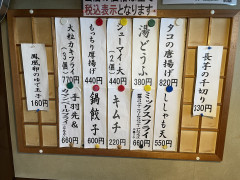 税込表示となります。
長芋の千切り
330円
タコの唐揚げ
820円
湯どうふ
380円
シューマイ・大
(2個)
440円
もっちり厚揚げ
440円
大粒カキフライ
(3個)
770円
鳳凰卵のゆで玉子
160円
ししゃも天
550円
ミックスフライ
660円
キムチ
220円
鍋餃子
600円
手羽先&
660円